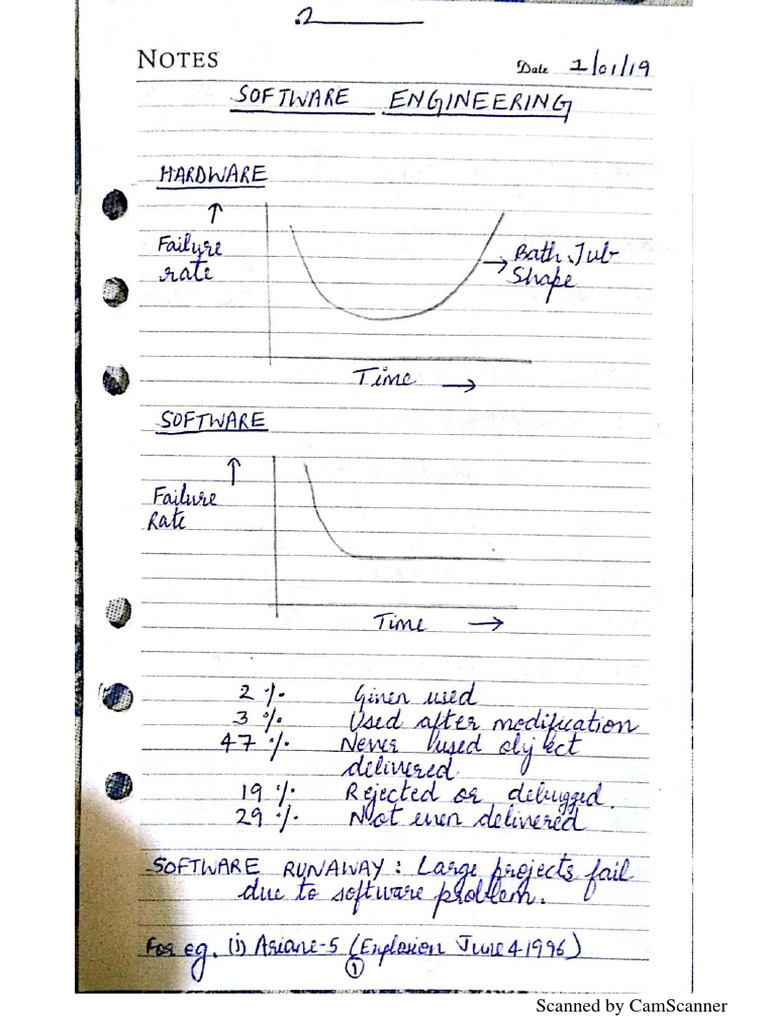 2
NOTES
Date 1/01/19
SOFTWARE ENGINEERING
HARDWARE
↑
Failure
rate
→ Bath Tub
Shape
Time →
SOFTWARE
↑
Failure
Rate
Time →
2 % Given used
3 % Used after modification
47 % Never used object
delivered
19 % Rejected or debugged.
29 % Not even delivered
SOFTWARE RUNAWAY : Large projects fail
due to software problem.
For eg. (i) Ariane-5 (Explosion June 4 1996)
1
Scanned by CamScanner